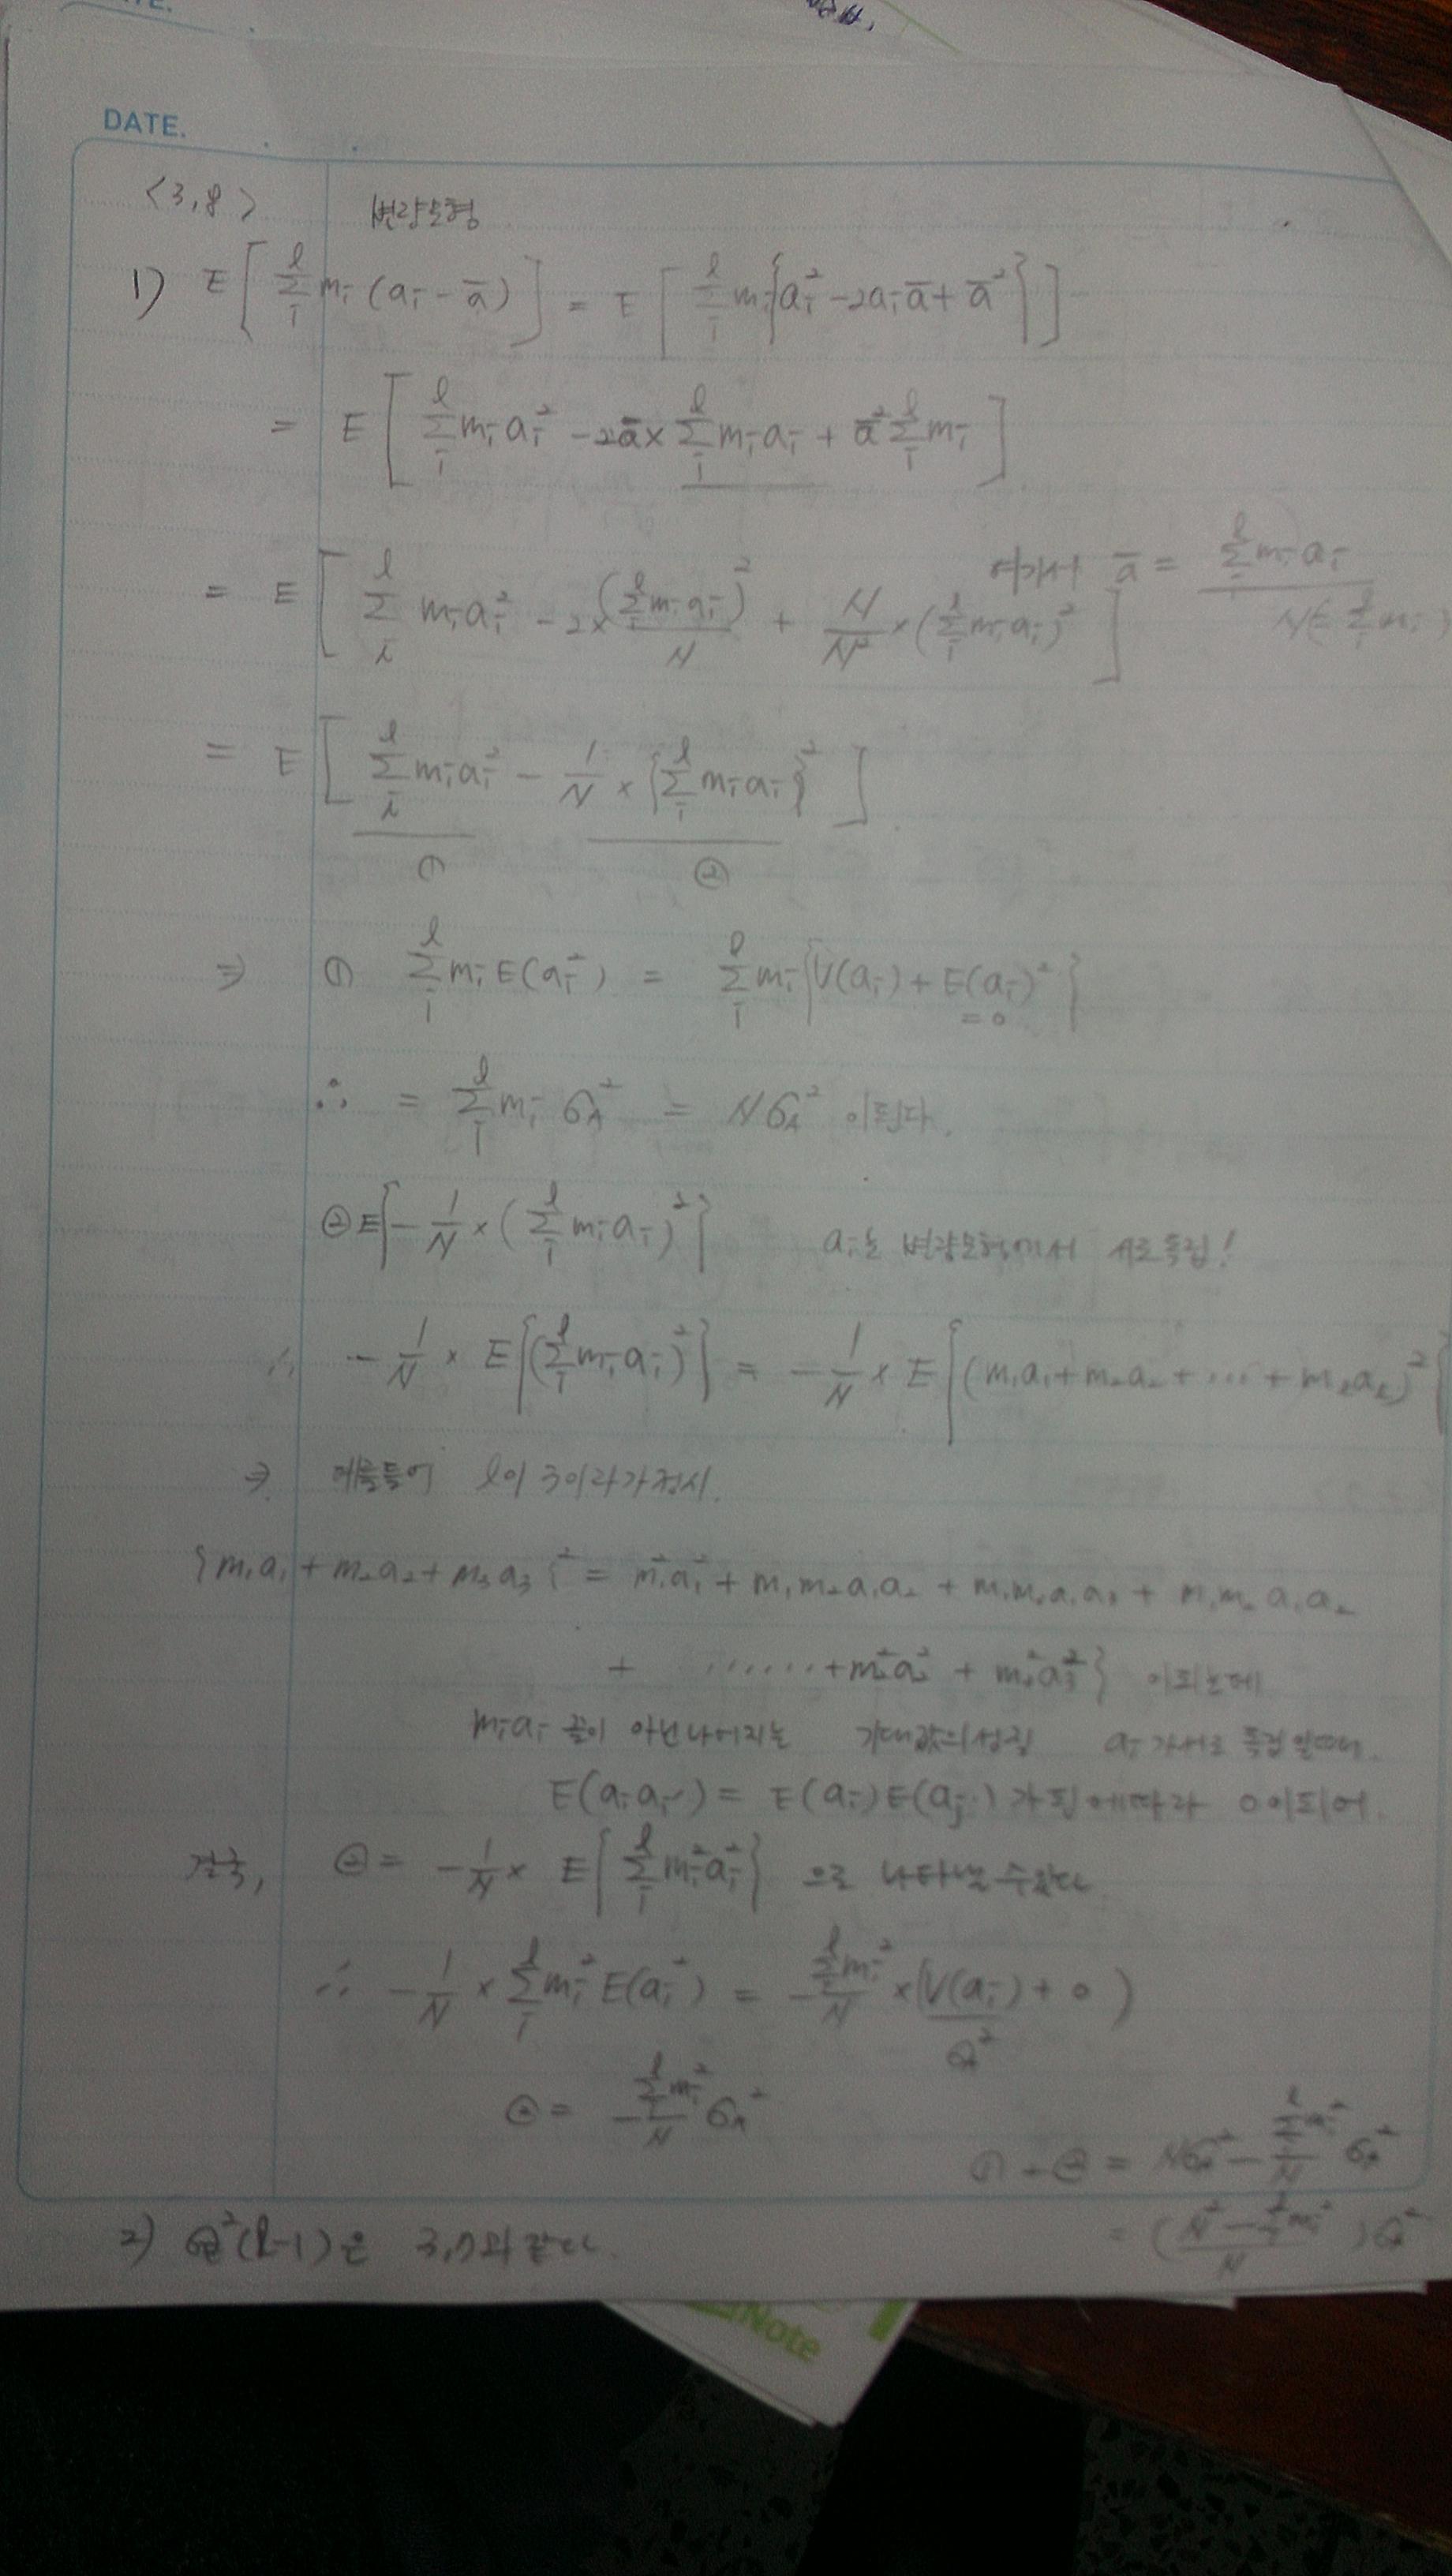 DATE.
<3,8> 변량모형
1) E[Σ_i^l m_i (a_i - ā)] = E[Σ_i^l m_i{a_i² - 2a_i ā + ā²}]
= E[Σ_i^l m_i a_i² - 2ā × Σ_i^l m_i a_i + ā² Σ_i^l m_i]
여기서 ā = Σ_i^l m_i a_i / N(= Σ_i^l m_i)
= E[Σ_i^l m_i a_i² - 2 × (Σ_i^l m_i a_i)² / N + N/N² × (Σ_i^l m_i a_i)²]
= E[Σ_i^l m_i a_i² - 1/N × {Σ_i^l m_i a_i}²]
① ②
⇒ ① Σ_i^l m_i E(a_i²) = Σ_i^l m_i {V(a_i) + E(a_i)²}
= 0
∴ = Σ_i^l m_i σ_A² = Nσ_A² 이된다.
② E{- 1/N × (Σ_i^l m_i a_i)²} a_i는 변량모형에서 서로독립!
∴ - 1/N × E{(Σ_i^l m_i a_i)²} = - 1/N × E{(m₁a₁ + m₂a₂ + ... + m_l a_l)²}
⇒ 예를들어 l이 3이라가정시.
{m₁a₁ + m₂a₂ + m₃a₃}² = m₁²a₁² + m₁m₂a₁a₂ + m₁m₃a₁a₃ + m₁m₂a₁a₂
+ ······ + m₂²a₂² + m₃²a₃²} 이되는데
m_i a_i 꼴이 아닌나머지는 기대값의성질 a_i가서로 독립일때.
E(a_i a_i') = E(a_i)E(a_j) 가됨에따라 0이되어.
결국, ② = - 1/N × E{Σ_i^l m_i² a_i²} 으로 나타낼수있다
∴ - 1/N × Σ_i^l m_i² E(a_i²) = - Σ_i^l m_i² / N × (V(a_i) + 0)
σ_A²
② = - Σ_i^l m_i² / N σ_A²
① + ② = Nσ_A² - Σ_i^l m_i² / N σ_A²
= (N² - Σ_i^l m_i² / N) σ_A²
2) σ_E²(l-1)은 3,7과 같다.
Note